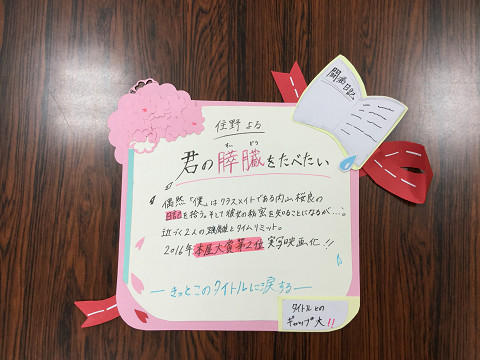 住野 よる
すい ぞう
君の膵臓をたべたい
偶然「僕」はクラスメイトである山内桜良の
日記を拾う。そして彼女の秘密を知ることになるが…。
近づく2人の距離とタイムリミット。
2016年本屋大賞第2位 実写映画化!!
―きっとこのタイトルに涙する―
闘病日記
タイトルとの
ギャップ大!!